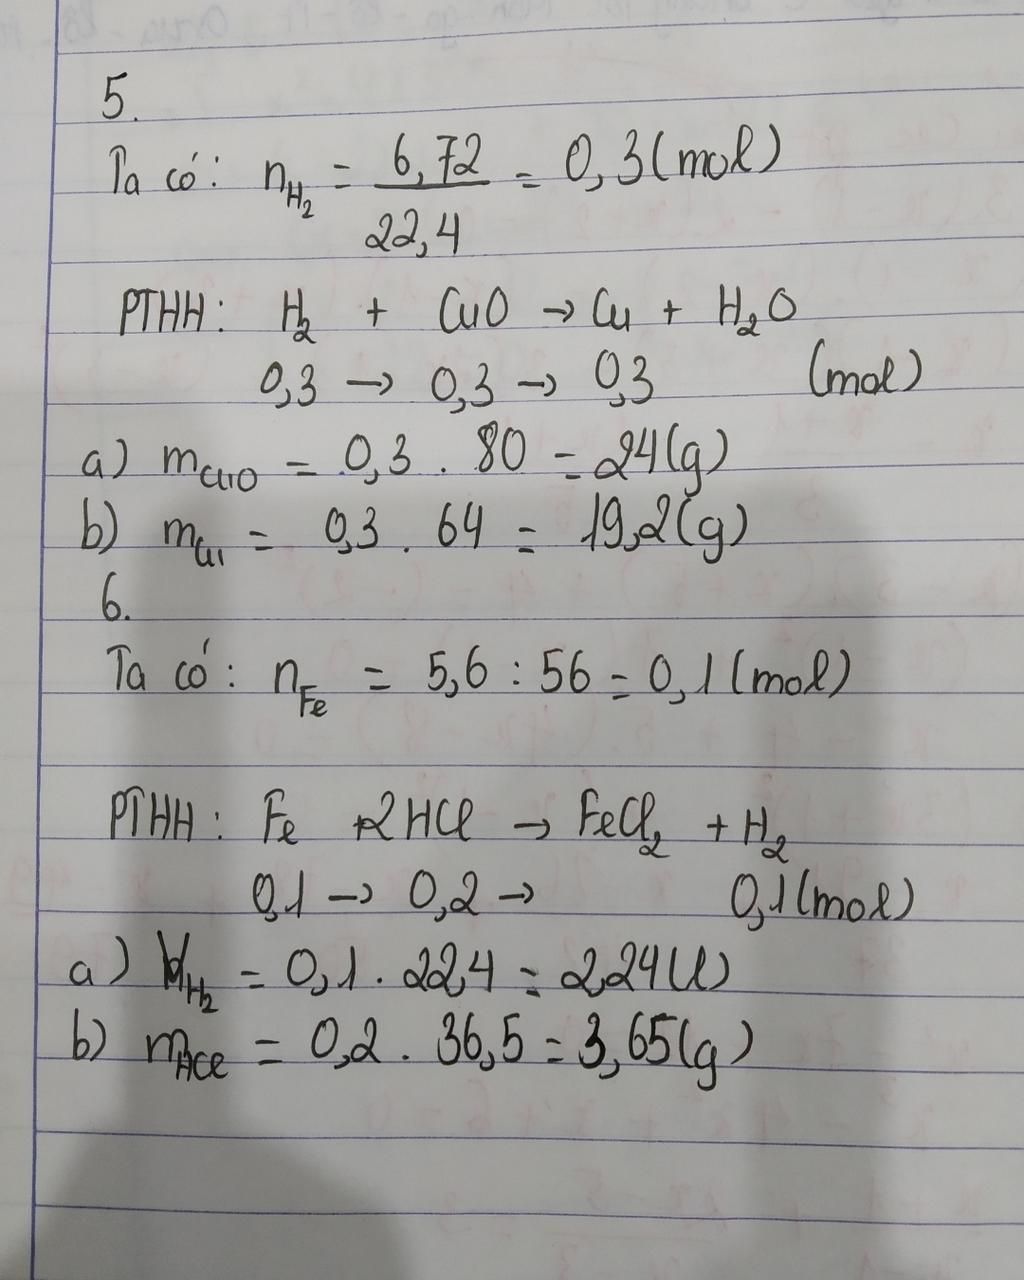 5.
Ta có: nH₂ = 6,72/22,4 = 0,3 (mol)
PTHH: H₂ + CuO → Cu + H₂O
0,3 → 0,3 → 0,3 (mol)
a) mCuO = 0,3 . 80 = 24 (g)
b) mCu = 0,3 . 64 = 19,2 (g)
6.
Ta có: nFe = 5,6 : 56 = 0,1 (mol)
PTHH: Fe + 2HCl → FeCl₂ + H₂
0,1 → 0,2 → 0,1 (mol)
a) VH₂ = 0,1 . 22,4 = 2,24 (l)
b) mHCl = 0,2 . 36,5 = 3,65 (g)